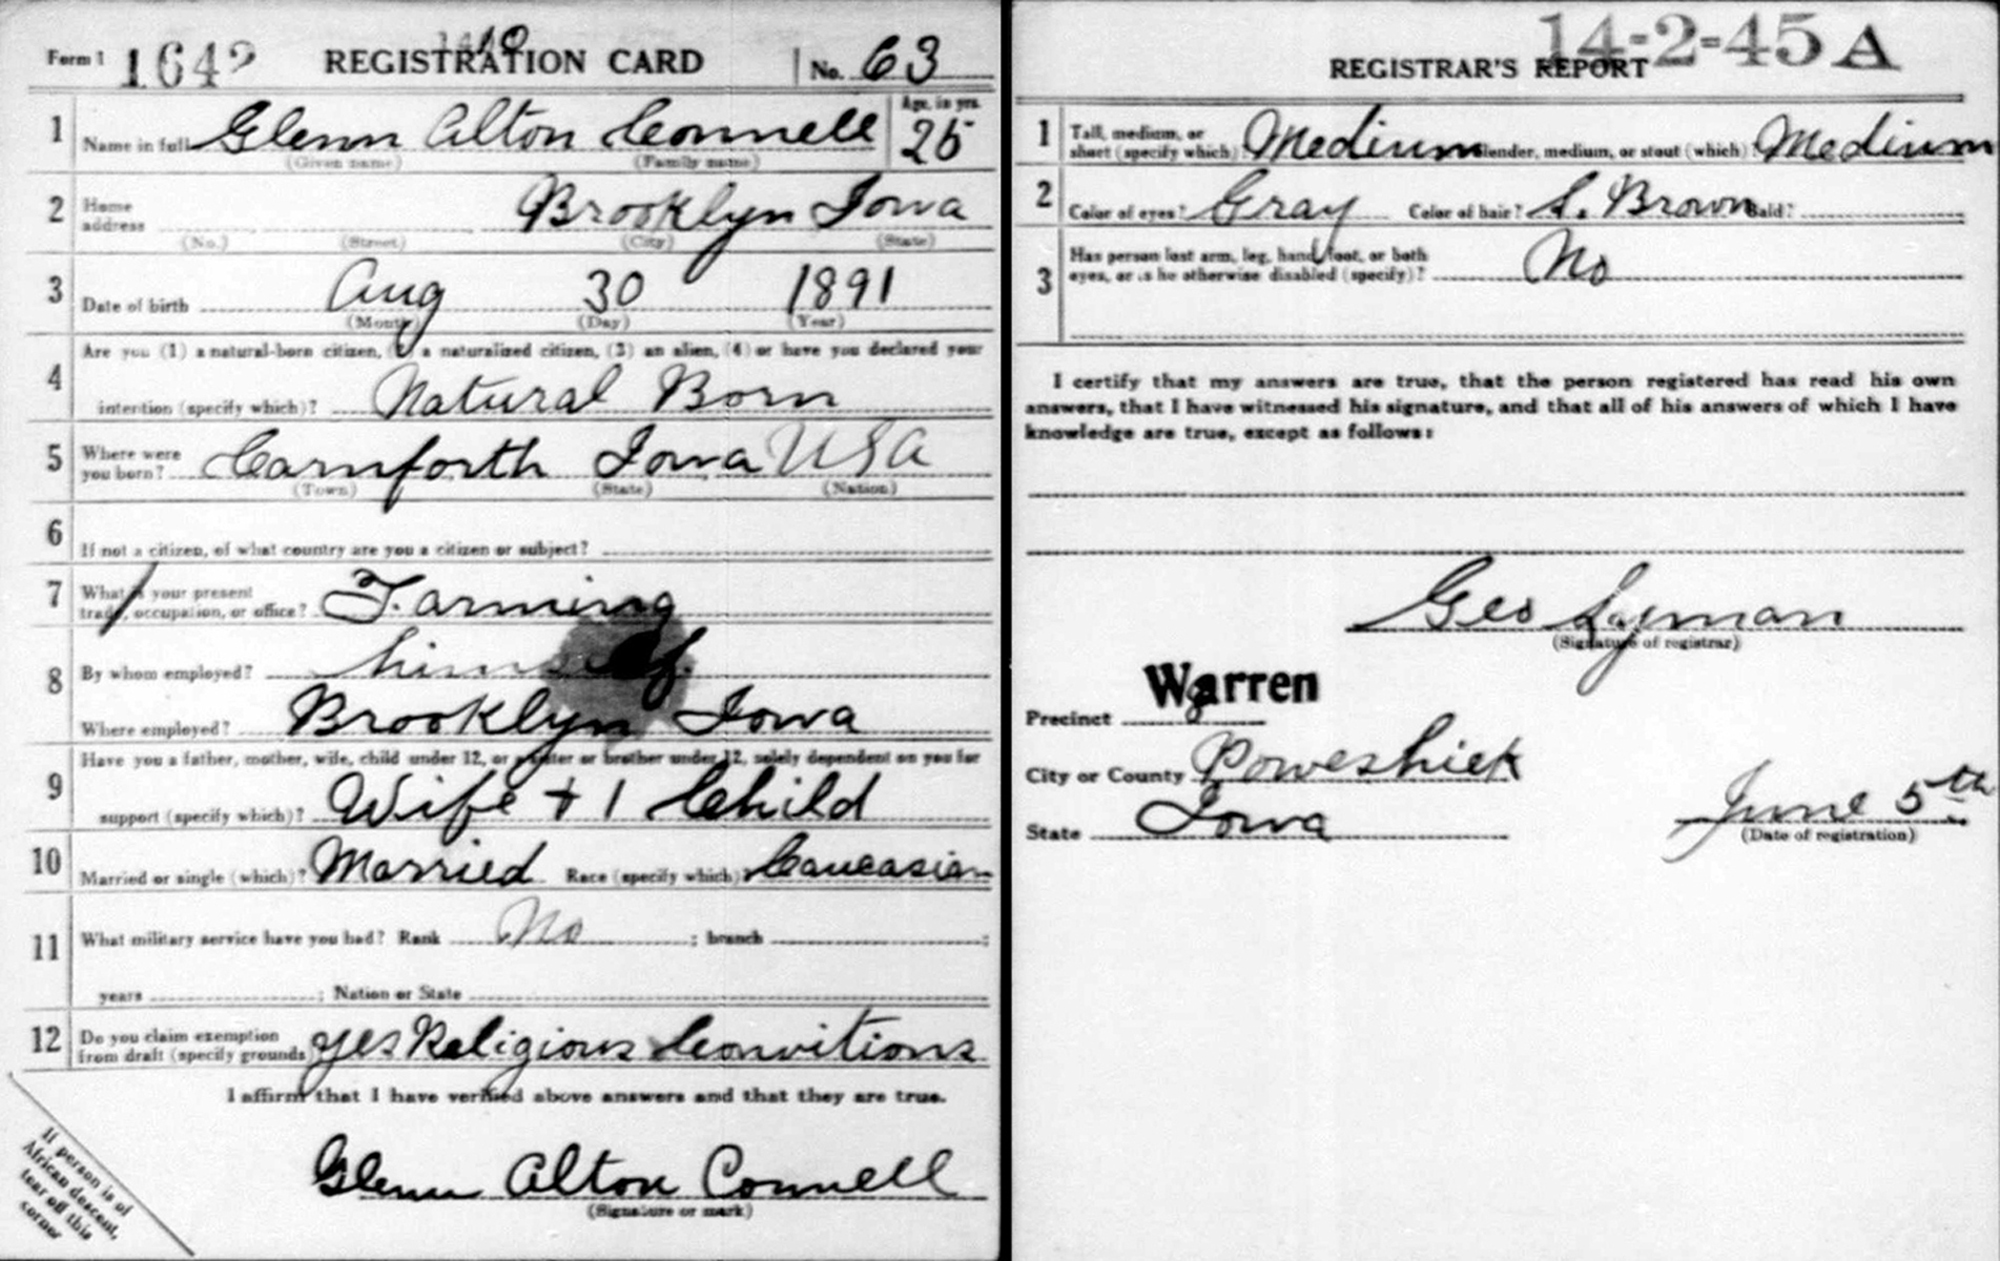 Form 1 1642 REGISTRATION CARD No. 63
1 Name in full Glenn Alton Connell Age, in yrs. 25
(Given name) (Family name)
2 Home address Brooklyn Iowa
(No.) (Street) (City) (State)
3 Date of birth Aug 30 1891
(Month) (Day) (Year)
4 Are you (1) a natural-born citizen, (2) a naturalized citizen, (3) an alien, (4) or have you declared your
intention (specify which)? Natural Born
5 Where were you born? Carnforth Iowa USA
(Town) (State) (Nation)
6 If not a citizen, of what country are you a citizen or subject?
7 What is your present trade, occupation, or office? Farming
8 By whom employed? himself
Where employed? Brooklyn Iowa
9 Have you a father, mother, wife, child under 12, or a sister or brother under 12, solely dependent on you for
support (specify which)? Wife + 1 Child
10 Married or single (which)? Married Race (specify which)? Caucasian
11 What military service have you had? Rank No ; branch ;
years ; Nation or State
12 Do you claim exemption from draft (specify grounds) yes Religious Convitions
I affirm that I have verified above answers and that they are true.
Glenn Alton Connell
(Signature or mark)
If person is of
African descent,
tear off this
corner
14-2-45 A
REGISTRAR'S REPORT
1 Tall, medium, or short (specify which)? Medium Slender, medium, or stout (which)? Medium
2 Color of eyes? Gray Color of hair? L. Brown Bald?
3 Has person lost arm, leg, hand, foot, or both
eyes, or is he otherwise disabled (specify)? No
I certify that my answers are true, that the person registered has read his own
answers, that I have witnessed his signature, and that all of his answers of which I have
knowledge are true, except as follows:
Geo Lyman
(Signature of registrar)
Precinct Warren
City or County Poweshiek
State Iowa
June 5th
(Date of registration)